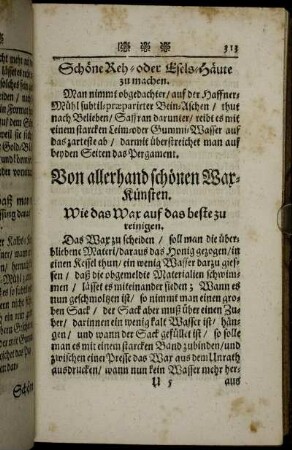 313
Schöne Reh- oder Esels-Häute
zu machen.
Man nimmt obgedachter/ auf der Haffner-
Mühl subtil-præparirter Bein-Aschen/ thut
nach Belieben/ Saffran darunter/ reibt es mit
einem starcken Leim-oder Gummi-Wasser auf
das zarteste ab/ darmit überstreichet man auf
beyden Seiten das Pergament.
Von allerhand schönen Wax-
Künsten.
Wie das Wax auf das beste zu
reinigen.
Das Wax zu scheiden/ soll man die über-
bliebene Materi/ daraus das Honig gezogen/ in
einen Kessel thun/ ein wenig Wasser darzu gies-
sen/ daß die obgemeldte Materialien schwim-
men/ lässet es miteinander sieden; Wann es
nun geschmoltzen ist/ so nimmt man einen gro-
ben Sack/ der Sack aber muß über einen Zu-
ber/ darinnen ein wenig kalt Wasser ist/ hän-
gen/ und wann der Sack gefüllet ist/ so solle
man es mit einem starcken Band zubinden/ und
zwischen einer Presse das Wax aus dem Unrath
ausdrucken/ wann nun kein Wasser mehr her-
U 5
aus
Schön